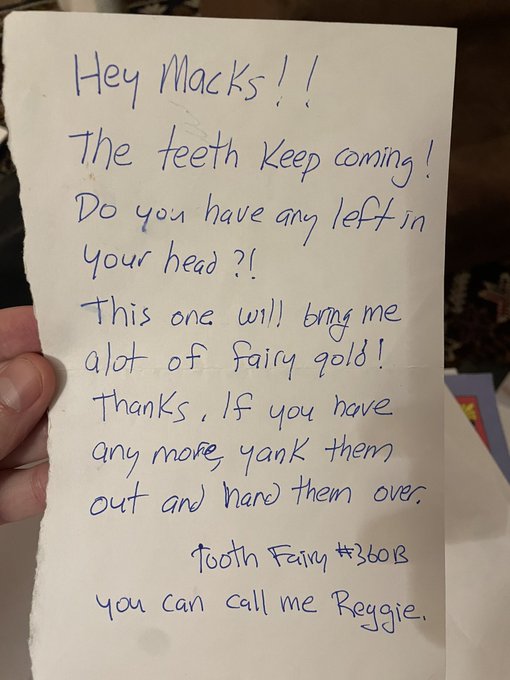 Hey Macks!!
The teeth keep coming!
Do you have any left in
your head?!
This one will bring me
alot of fairy gold!
Thanks. If you have
any more, yank them
out and hand them over.
Tooth Fairy #360B
you can call me Reggie.